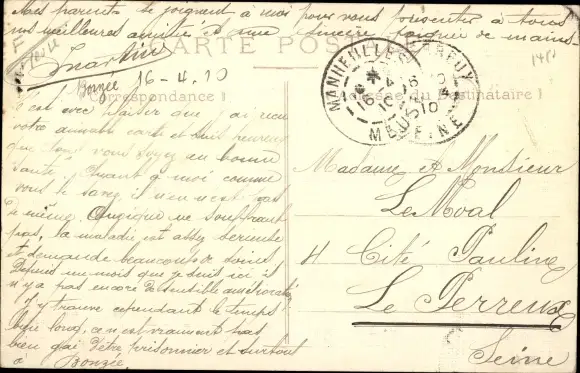 Mes parents se joignent à moi pour vous présenter à tous
nos meilleures amitiés et une sincère poignée de mains.
Martin
CARTE POSTALE
Bonzée 16-4.10
(Correspondance)
C'est avec plaisir que ai reçu
votre aimable carte et suis heureux
que tous vous soyez en bonne
santé. Quant à moi comme
vous le savez il n'en est pas
de même. Quoique ne souffrant
pas, la maladie est assez sérieuse
et demande beaucoup de soins.
Depuis un mois que je suis ici il
n'y a pas encore de sensible amélioration
J'y trouve cependant le temps
bien long, ce n'est vraiment pas
bien gai d'être prisonnier et surtout
à Bonzée.
MANHEULLES
MEUSE
LE PERREUX
SEINE
16
10
du Destinataire)
Madame et Monsieur
Le Moal
4 Cité Pauline
Le Perreux
Seine